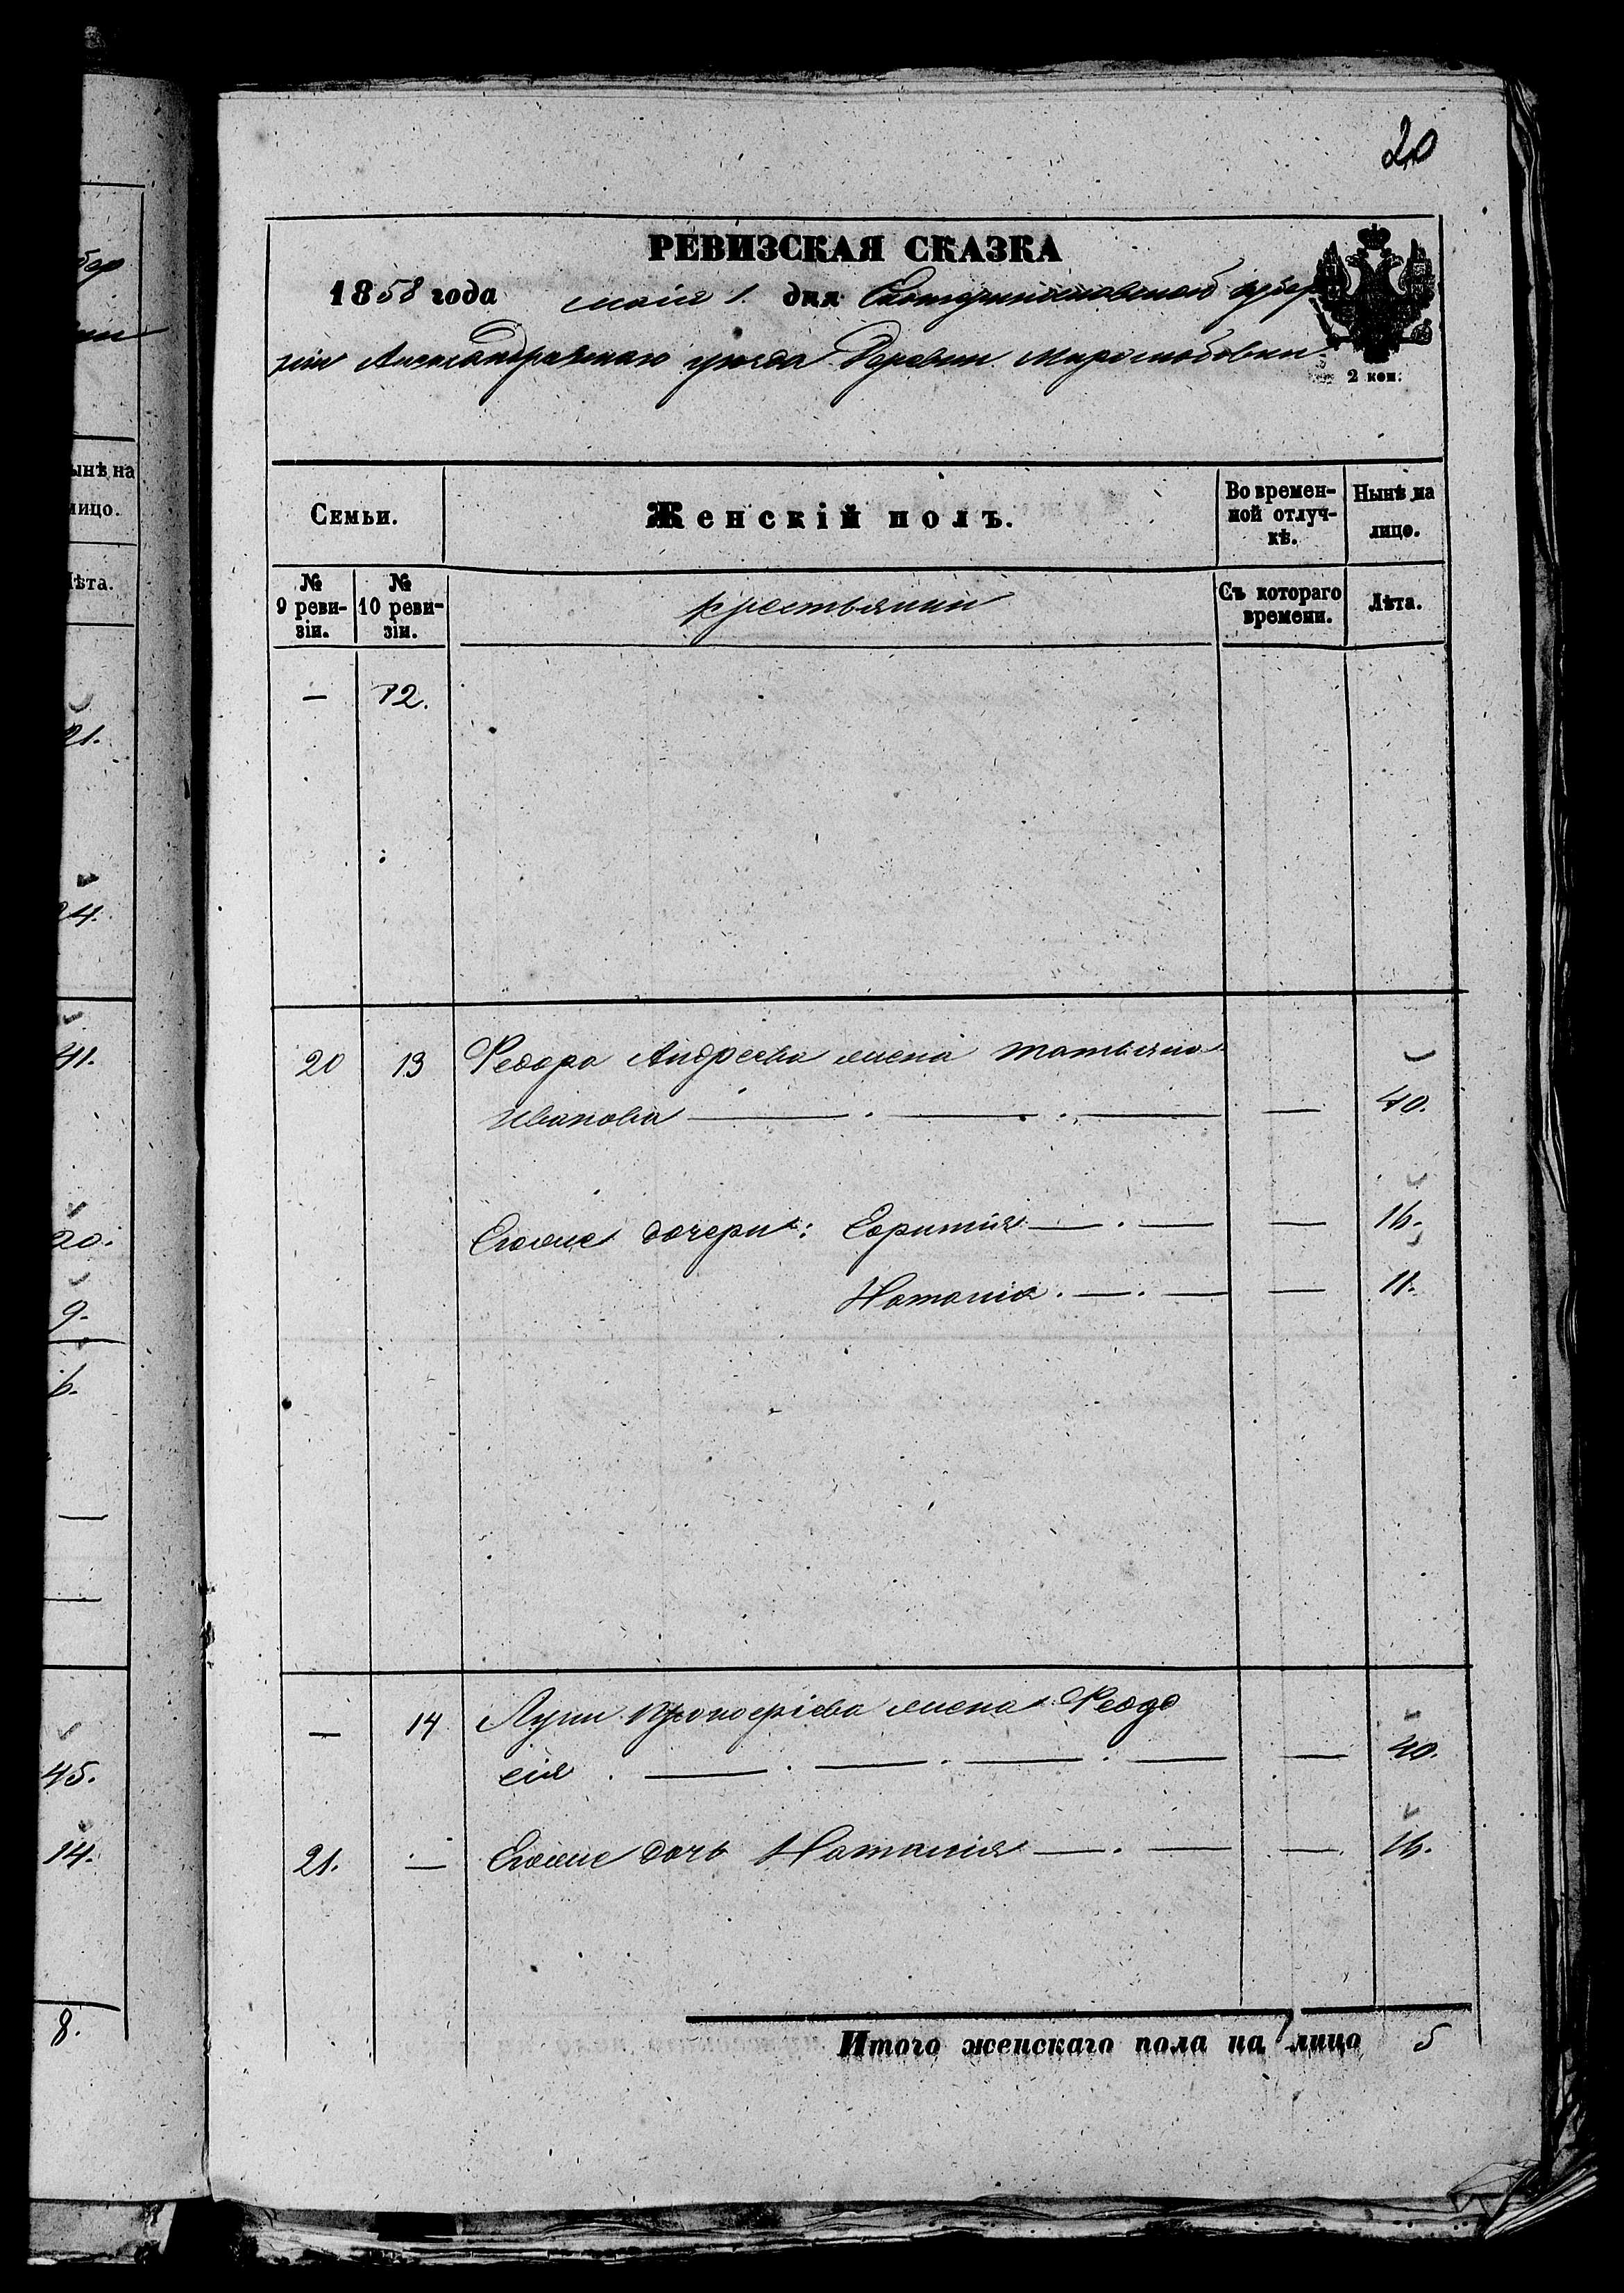 20
РЕВИЗСКАЯ СКАЗКА
1858 года маія 1. дня Екатеринославской губер
ніи Александровскаго уезда Деревни Миролюбовки
2 коп.
Семьи.
Женскій полъ.
Во времен-
ной отлуч-
кѣ.
Нынѣ на
лицо.
№
9 реви-
зіи.
№
10 реви-
зіи.
крестьянки
Съ котораго
времени.
Лѣта.
— 12.
20 13 Федора Андреева жена Татьяна
Иванова — — — — 40.
Егоже дочери: — — — 16.
Наталія — — — 11.
— 14 Прокофіева жена Феодо
сія — — — — — 40.
21. — Егоже дочь Наталія — — — 16.
Итого женскаго пола на лицо 5
ынѣ на
лицо.
Лѣта.
21.
24.
41.
20.
9.
6.
45.
14.
8.